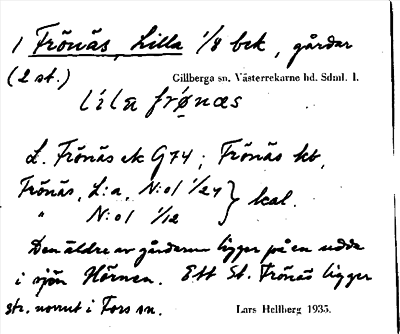 1 Frönäs, Lilla 1/8 bck, gårdar
(2 st.) Gillberga sn. Västerrekarne hd. Sdml. I.
li'la frø̀nas
L. Frönäs ek G74; Frönäs kb,
Frönäs, L:a, N:o1 1/24 } kal.
" N:o1 1/12
Den äldre av gårdarna ligger på en udde
i sjön Hörnen. Ett St. Frönäs ligger
str. norrut i Fors sn. Lars Hellberg 1935.